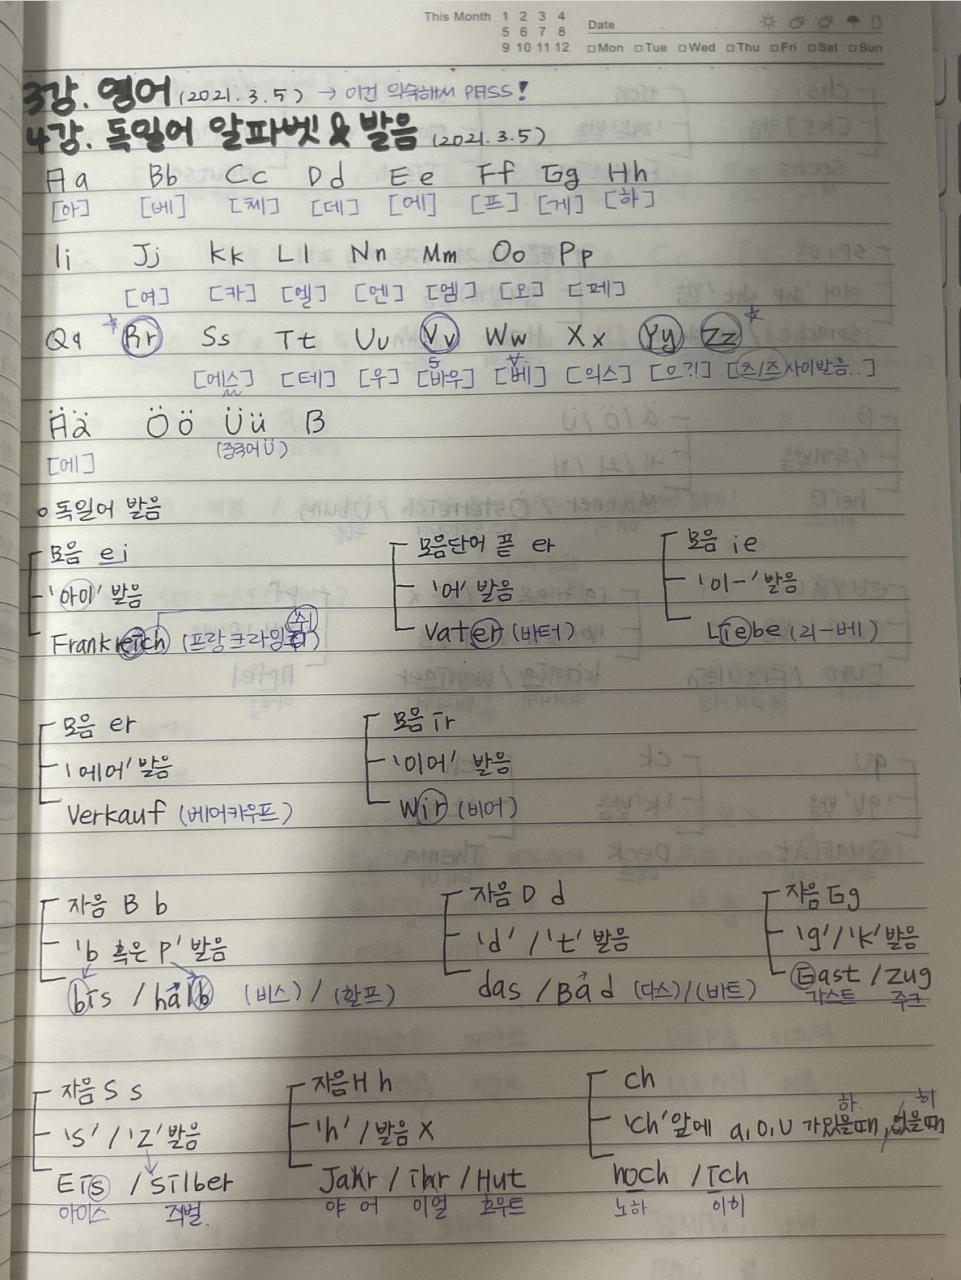 This Month 1 2 3 4
5 6 7 8
9 10 11 12
Date
Mon Tue Wed Thu Fri Sat Sun
3강. 영어 (2021.3.5) → 이건 익숙해서 PASS!
4강. 독일어 알파벳 & 발음 (2021.3.5)
Aa Bb Cc Dd Ee Ff Gg Hh
[아] [베] [체] [데] [에] [프] [게] [하]
Ii Jj Kk Ll Nn Mm Oo Pp
[여] [카] [엘] [엔] [엠] [오] [페]
Qq *Rr Ss Tt Uu Vv Ww Xx Yy Zz*
[에스] [테] [우] [바우] [베] [익스] [으기] [츠/즈 사이발음..]
Ää Öö Üü ß
[에] (중국어 ü)
○ 독일어 발음
모음 ei 모음단어 끝 er 모음 ie
'아이' 발음 '어' 발음 '이-' 발음
Frankreich (프랑크라잉쉬) Vater (바터) Liebe (리-베)
모음 er 모음 ir
'에어' 발음 '이어' 발음
Verkauf (베어카우프) Wir (비어)
자음 B b 자음 D d 자음 Gg
'b 혹은 p' 발음 'd' / 't' 발음 'g'/'k' 발음
bis / halb (비스) / (할프) das / Bad (다스)/(바트) Gast / Zug
가스트 주크
자음 S s 자음 H h ch
's' / 'z' 발음 'h' / 발음 X 'ch' 앞에 a, o, u 가 있을때, 없을때
하 히
Eis / silber Jahr / ihr / Hut noch / Ich
아이스 지벌 야 어 이얼 흐우트 노하 이히